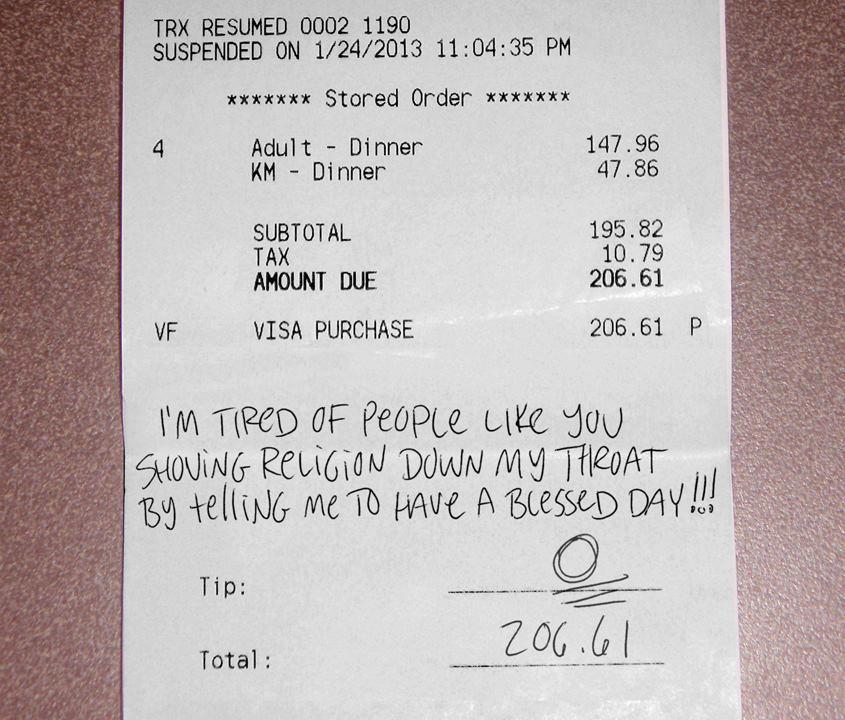 TRX RESUMED 0002 1190
SUSPENDED ON 1/24/2013 11:04:35 PM
******* Stored Order *******
4 Adult - Dinner 147.96
KM - Dinner 47.86
SUBTOTAL 195.82
TAX 10.79
AMOUNT DUE 206.61
VF VISA PURCHASE 206.61 P
I'M TIRED OF PEOPLE LIKE YOU
SHOVING RELIGION DOWN MY THROAT
BY TELLING ME TO HAVE A BLESSED DAY!!!
Tip: 0
Total: 206.61